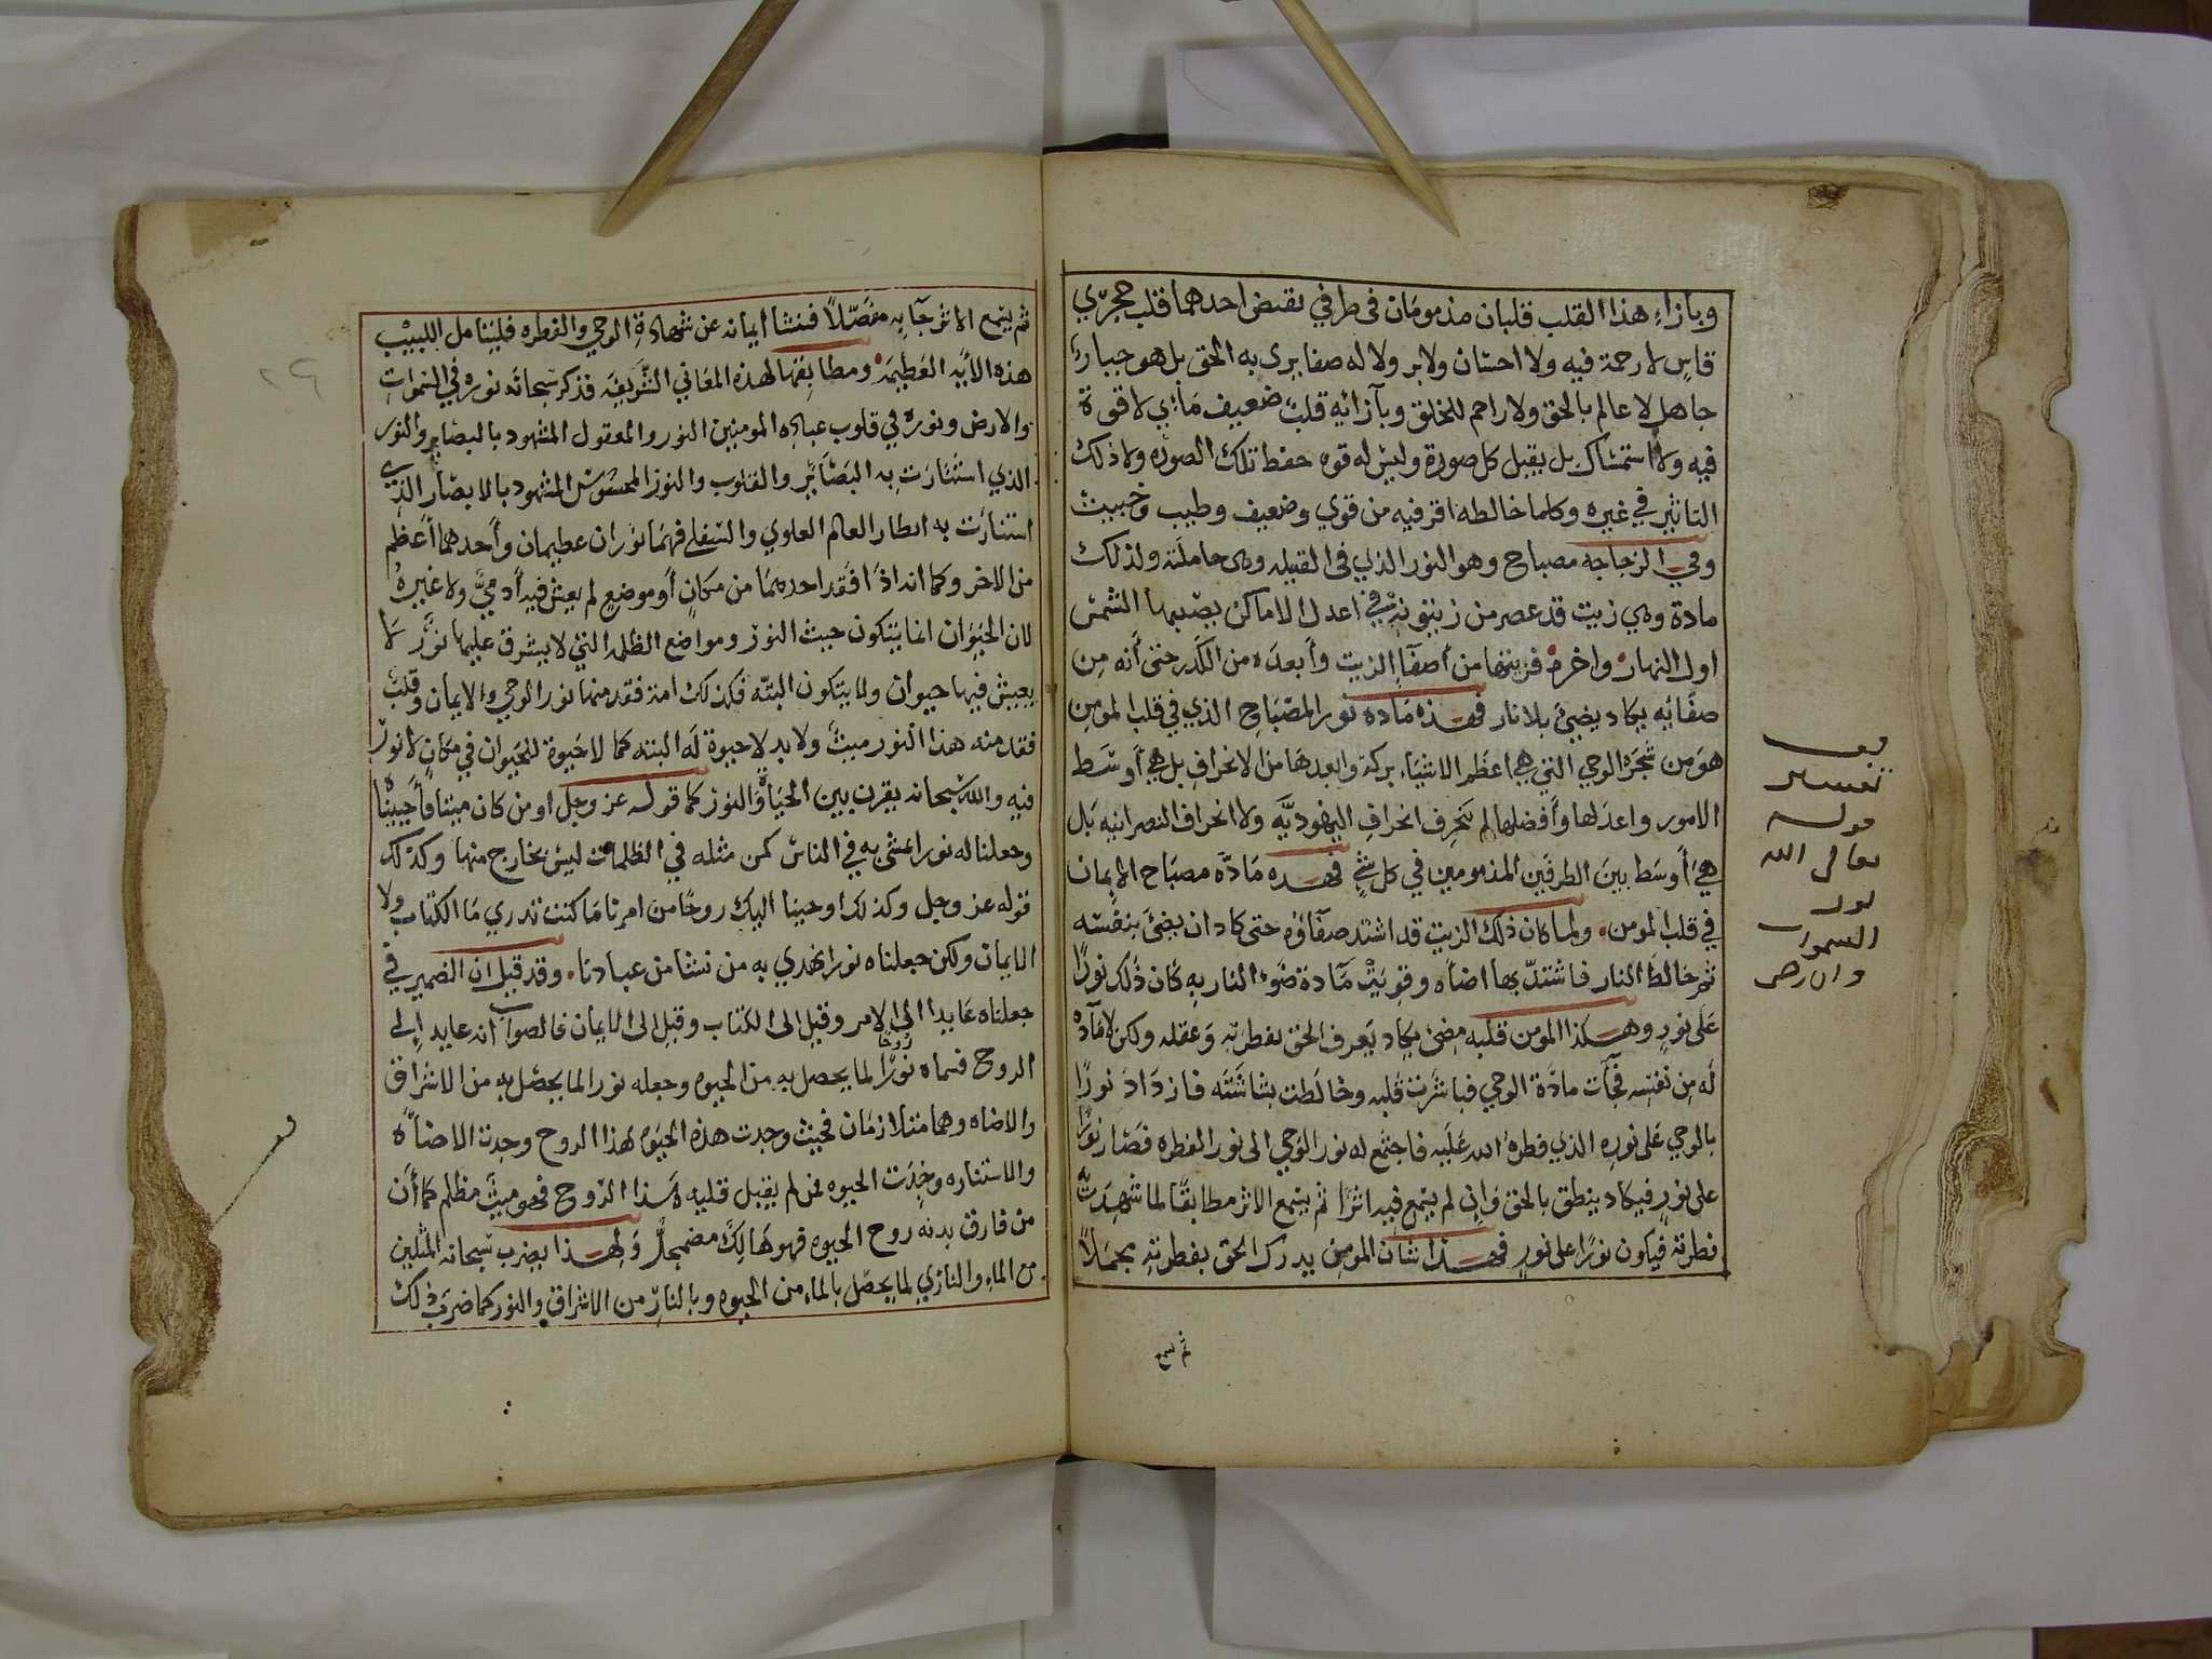 وبازاءِ هذا القلب قلبان مذمومان فى طرفي نقيض احدهما قلب حجرّي
قاسٍ لا رحمة فيه ولا احسان ولا بر ولا له صفا يرى به الحق بل هو جبار
جاهل لا عالم بالحق ولا راحم للخلق وبآزائه قلبٌ ضعيف مَائي لا قوة
فيه ولا استمساك بل يقبل كل صورة وليس له قوه حفظ تلك الصوره ولا ذلك
التاثير في غيره وكلما خالطه اثر فيه من قوي وضعيف وطيب وخبيث
وفي الزجاجه مصباح وهو النور الذي فى الفتيله وهى حاملته ولذلك
مادة وهي زيت قد عصر من زيتونة في اعدل الاماكن يصيبها الشمس
اول النهار واخره فزيتها من أصفآ الزيت وأبعده من الكدر حتى أنه من
صفَائه يكاد يضيئ بلا نار فهذه مَاده نور المصْبَاح الذي في قلب المومن
هوَ من شجَرة الوحي التي هي اعظم الاشيَاء بركة وابعدهَا من الانحرافِ بل هي أوسَط
الامور واعدَلها وأفضلها لم تنحَرِف انحرافَ اليهوديَّه ولا انحراف النصرانيه بَل
هيَ أوسَط بينَ الطرفَين المذمومين في كل شئٍ فهذه مَادَّه مصبَاح الايمان
في قلب المومن ولما كان ذلك الزيت قد اشتد صفآؤه حتى كاد ان يضئ بنفسه
ثمر خالط النار فاشتدّ بها اضاه وقويَتْ مَآدة ضَوء النار بهِ كان ذلك نورًا
عَلى نورٍ وهكذا المومن قلبه مضئ يكاد يَعرف الحق بفطرتهِ وعقله ولكن لا مَآده
لَه مِن نفسه فجآت مادَّة الوحي فباشَرت قَلبه وخالَطت بشاشَتَه فازدَادَ نورًا
بالوحي عَلى نورِه الذي فطرهُ الله عَلَيه فاجتمع له نور الوَحي الى نور الفطره فصَار نورًا
على نورٍ فيكاد ينطق بالحق وَان لم يسمع فيه اثرًا ثم يسمع الاثر مطابقًا لما شهدَت به
فطرته فيكون نورًا على نورٍ فهذا شان المومن يدرك الحق بفطرتهِ مجمَلاً
ثم يسمع
يف
تفسير
قوله
تعالى الله
نور
السموات
والارض
ثم يسمع الاثر جآ به مفصّلاً فينشا ايمانه عن شهادةِ الوحي والفطره فليتامل اللبيْب
هذه الآيَه العَظيمَة ومطابقتها لهذه المعَاني الشَّريفَه فذكر سُبحانَه نوره في السَّمواتِ
والارض ونوره في قلوب عبادِه المومنين النور والمعقول المشهود بالبصاير والنور
الذي استَنَارَت بِه البَصَآئر والقلوب والنور المحسُوس المشهود بالابصَار الذي
استنارَت به اقطار العالم العلوي والسّفلي فهمَا نوران عظيمان وأحدهما أعظم
من الاخر وكما انه اذا فَقد احدهمَا من مكانٍ أو موضعٍ لم يعش فيه أدميٌ ولا غيرهُ
لان الحيَوان انما يَتكون حيث النور ومواضع الظلمه التي لا يشرق عليها نوُرٌ لا
يعيش فيها حيوان ولا يتكون البتّه فكذلك امة فقد منها نور الوحي والايمان وقلبٌ
فقد منه هذا النور ميتٌ ولا بد لا حيوة لَه البته كما لا حَيوة للحَيوان في مكانٍ لا نورَ
فيه والله سُبحانه يقرن بين الحيَاة وَالنور كما قوله عز وجل او من كان ميتا فأحيينَاه
وجعلنا له نورا يمشي به في الناس كمن مثله في الظلمات ليس بخارج منها وكذلك
قوله عز وجل وكذلك اوحينا اليك روحًا من امرنا مَا كنت تدري مَا الكتاب ولا
الايمان ولكن جعلناه نورا نهدي به من نشا من عبادنا وقد قيل ان الضمير في
جعلناه عَايد الى الامر وقيل الى الكتاب وقيل الى الايمان فالصواب انه عايد إلى
الروح فسماه نورًا روحًا لما يحصل بهِ من الحيوه وجعله نورا لما يحصل بهِ من الاشراق
والاضاه وهما متلازمَان فحيث وجدت هذه الحَيَوه لهذا الروح وجدت الاضآه
والاستناره وجُدَت الحيوه فمن لم يقبل قلبه هَذا الرّوح فهو ميتٌ مظلم كما أن
من فارق بدنه روح الحيوه فهو هَالِكٌ مضمحلٌّ وَلهذا يضرب سُبحانه المثلين
من الماءِ والناري لما يحصّل بالماء من الحيوه وبالنارّ من الاشراق والنور كما ضربَ ذلك